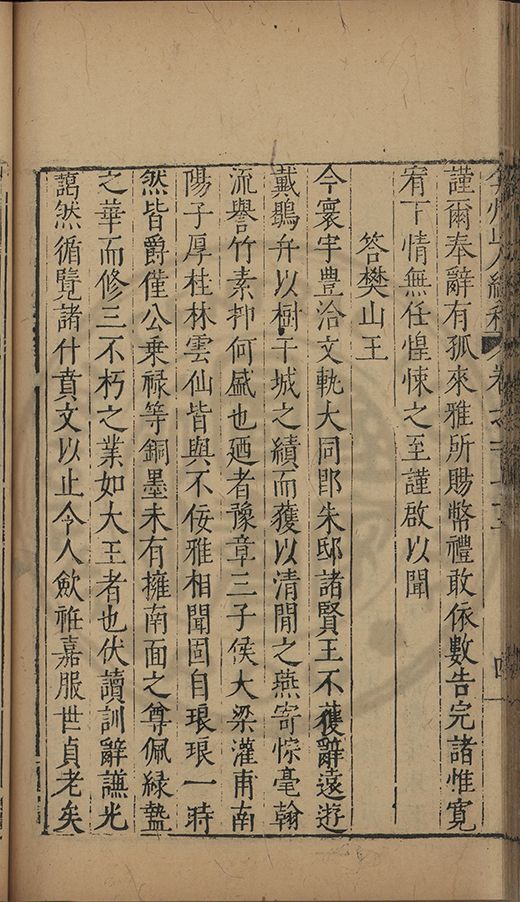 州山人續稿 卷之 四
謹爾奉辭有孤來雅所賜幣禮敢依數告完諸惟寬
宥下情無任惶悚之至謹啟以聞
答樊山王
今寰宇豊洽文軌大同即朱邸諸賢王不獲辭遠遊
戴鶡弁以樹干城之績而獲以清閒之燕寄悰毫翰
流譽竹素抑何盛也廼者豫章三子侯大梁灌甫南
陽子厚桂林雲仙皆與不佞雅相聞固自琅琅一時
然皆爵僅公乗禄等銅墨未有擁南面之尊佩綠盭
之華而修三不朽之業如大王者也伏讀訓辭謙光
藹然循覽諸什賁文以止令人歛袵嘉服世貞老矣